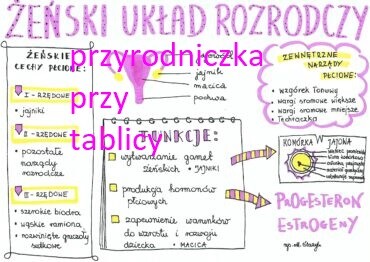 ŻEŃSKI UKŁAD ROZRODCZY
ŻEŃSKIE
CECHY PŁCIOWE:
I - RZĘDOWE
• jajniki
II - RZĘDOWE
• pozostałe
narządy
rozrodcze
III - RZĘDOWE
• szerokie biodra
• wąskie ramiona
• rozwinięte gruczoły
sutkowe
przyrodniczka
przy
tablicy
jajnik
macica
pochwa
ZEWNĘTRZNE
NARZĄDY
PŁCIOWE:
• wzgórek łonowy
• wargi sromowe większe
• wargi sromowe mniejsze
• łechtaczka
FUNKCJE:
wytwarzanie gamet
żeńskich • JAJNIKI
produkcja hormonów
płciowych
zapewnienie warunków
do wzrostu i rozwoju
dziecka • MACICA
KOMÓRKA JAJOWA
PROGESTERON
ESTROGENY